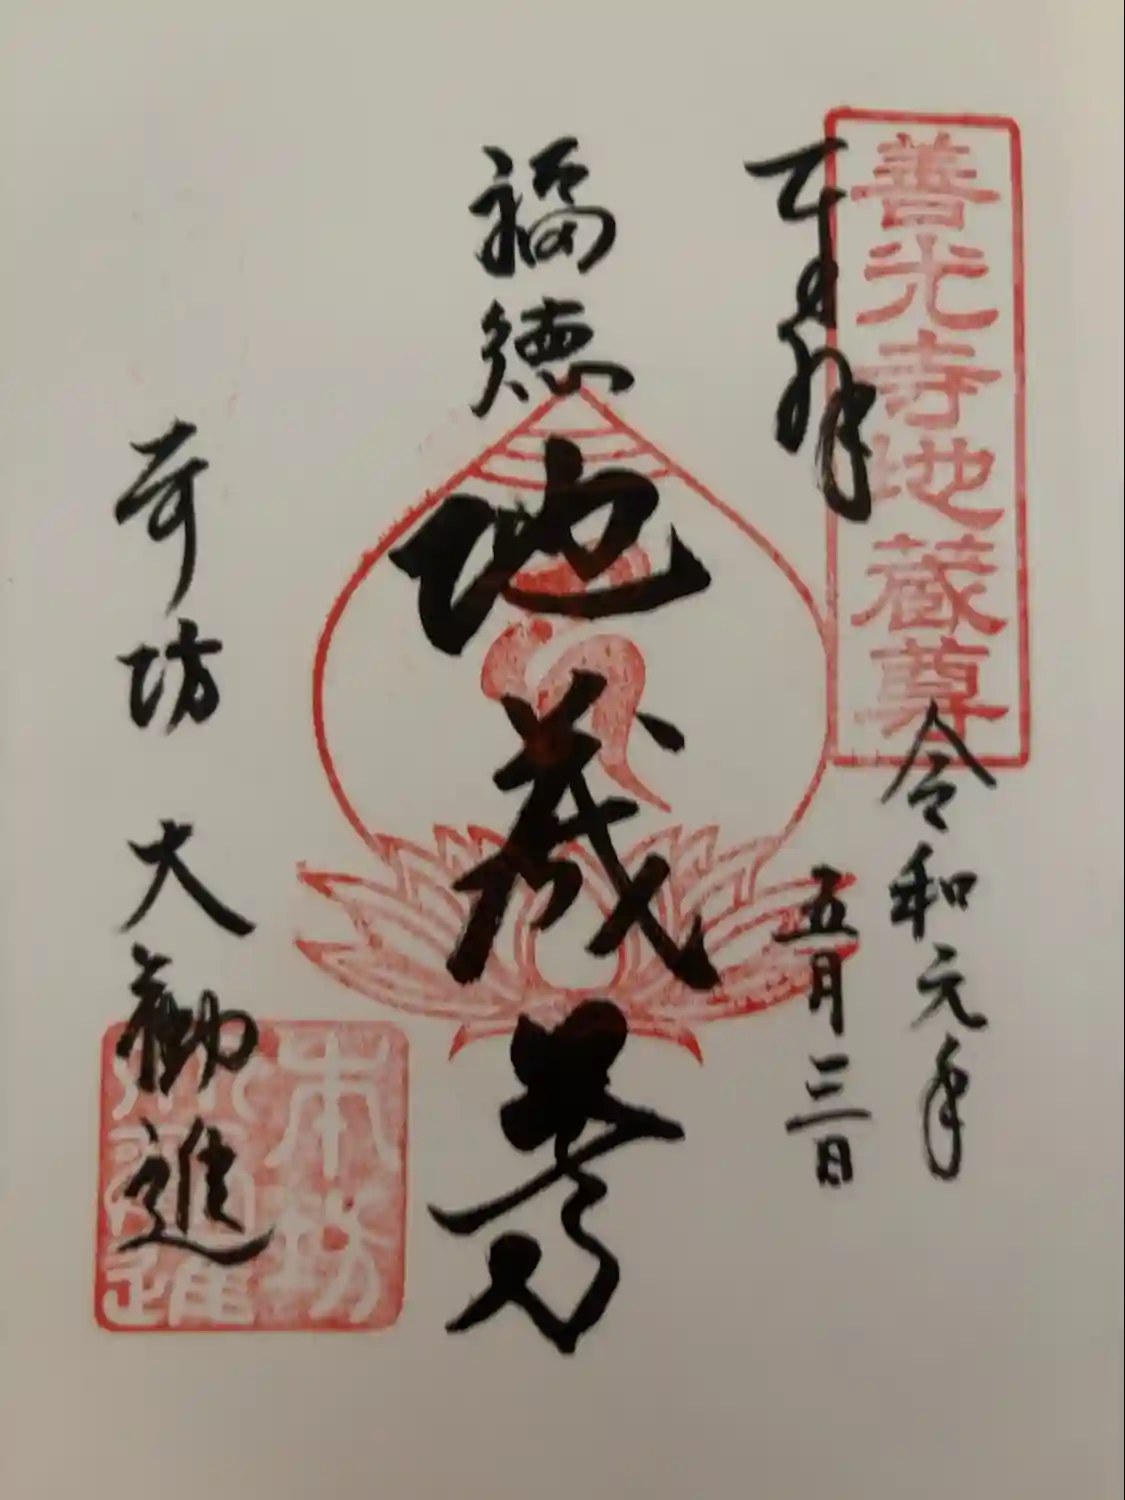 善光寺地蔵尊
奉拝
令和元年
五月三日
福徳
地蔵尊
本坊 大勧進
本坊
大勧進